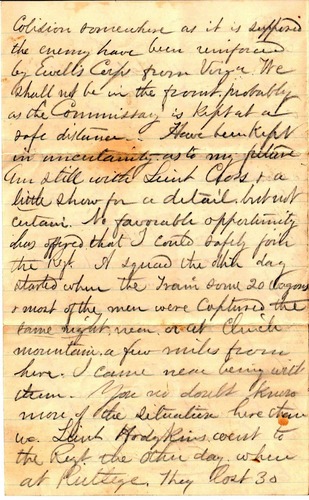 Colision somewhere as it is supposed
the enemy have been reinforced
by Ewells Corps from Virga. We
shall not be in the front, probably
as the Commissary is kept at a
safe distance. Have been kept
in uncertainity as to my future
am still with Leiut Closs & a
little show for a detail but not
certain. No favorable opportunity
has offered that I could safely join
the Regt. A squad the other day
started when the train some 20 wagons
& most of the men were captured the
same night, near or at Clinch
mountain, a few miles from
here. I came near being with
them. You no doubt know
more of the situation here than
us. Leiut Hodgkins went to
the Regt the other day when
at Rutlege. They lost 30